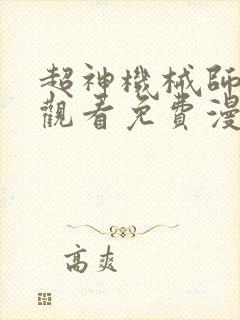 超神機械師
觀看免費漫
高爽